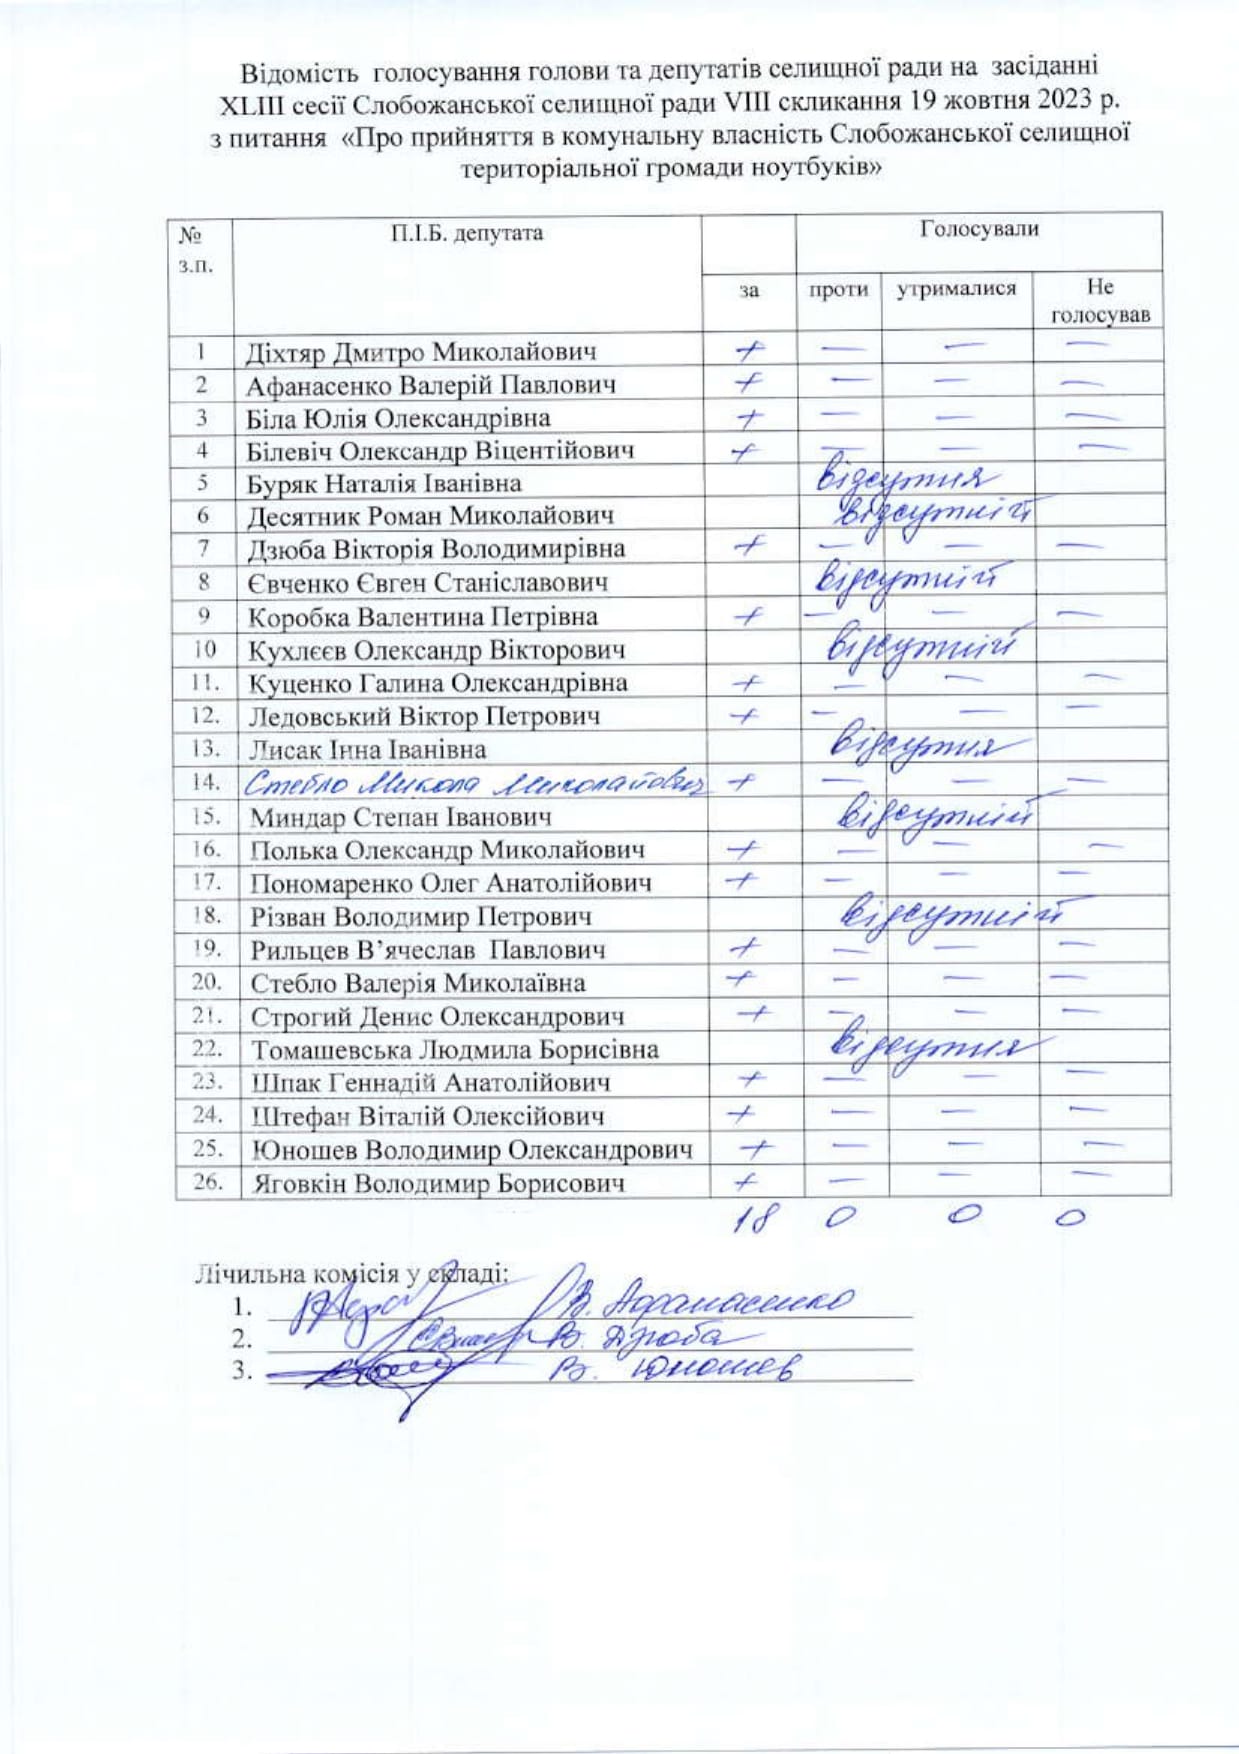 Відомість голосування голови та депутатів селищної ради на засіданні
XLIII сесії Слобожанської селищної ради VIII скликання 19 жовтня 2023 р.
з питання «Про прийняття в комунальну власність Слобожанської селищної
територіальної громади ноутбуків»
№ з.п. П.І.Б. депутата Голосували
за проти утрималися Не голосував
1 Діхтяр Дмитро Миколайович + — — —
2 Афанасенко Валерій Павлович + — — —
3 Біла Юлія Олександрівна + — — —
4 Білевіч Олександр Віцентійович + — — —
5 Буряк Наталія Іванівна відсутня
6 Десятник Роман Миколайович відсутній
7 Дзюба Вікторія Володимирівна + — — —
8 Євченко Євген Станіславович відсутній
9 Коробка Валентина Петрівна + — — —
10 Кухлєєв Олександр Вікторович відсутній
11. Куценко Галина Олександрівна + — — —
12. Ледовський Віктор Петрович + — — —
13. Лисак Інна Іванівна відсутня
14. Стебло Микола Миколайович + — — —
15. Миндар Степан Іванович відсутній
16. Полька Олександр Миколайович + — — —
17. Пономаренко Олег Анатолійович + — — —
18. Різван Володимир Петрович відсутній
19. Рильцев В’ячеслав Павлович + — — —
20. Стебло Валерія Миколаївна + — — —
21. Строгий Денис Олександрович + — — —
22. Томашевська Людмила Борисівна відсутня
23. Шпак Геннадій Анатолійович + — — —
24. Штефан Віталій Олексійович + — — —
25. Юношев Володимир Олександрович + — — —
26. Яговкін Володимир Борисович + — — —
18 0 0 0
Лічильна комісія у складі:
1. В. Афанасенко
2. В. Дзюба
3. В. Юношев